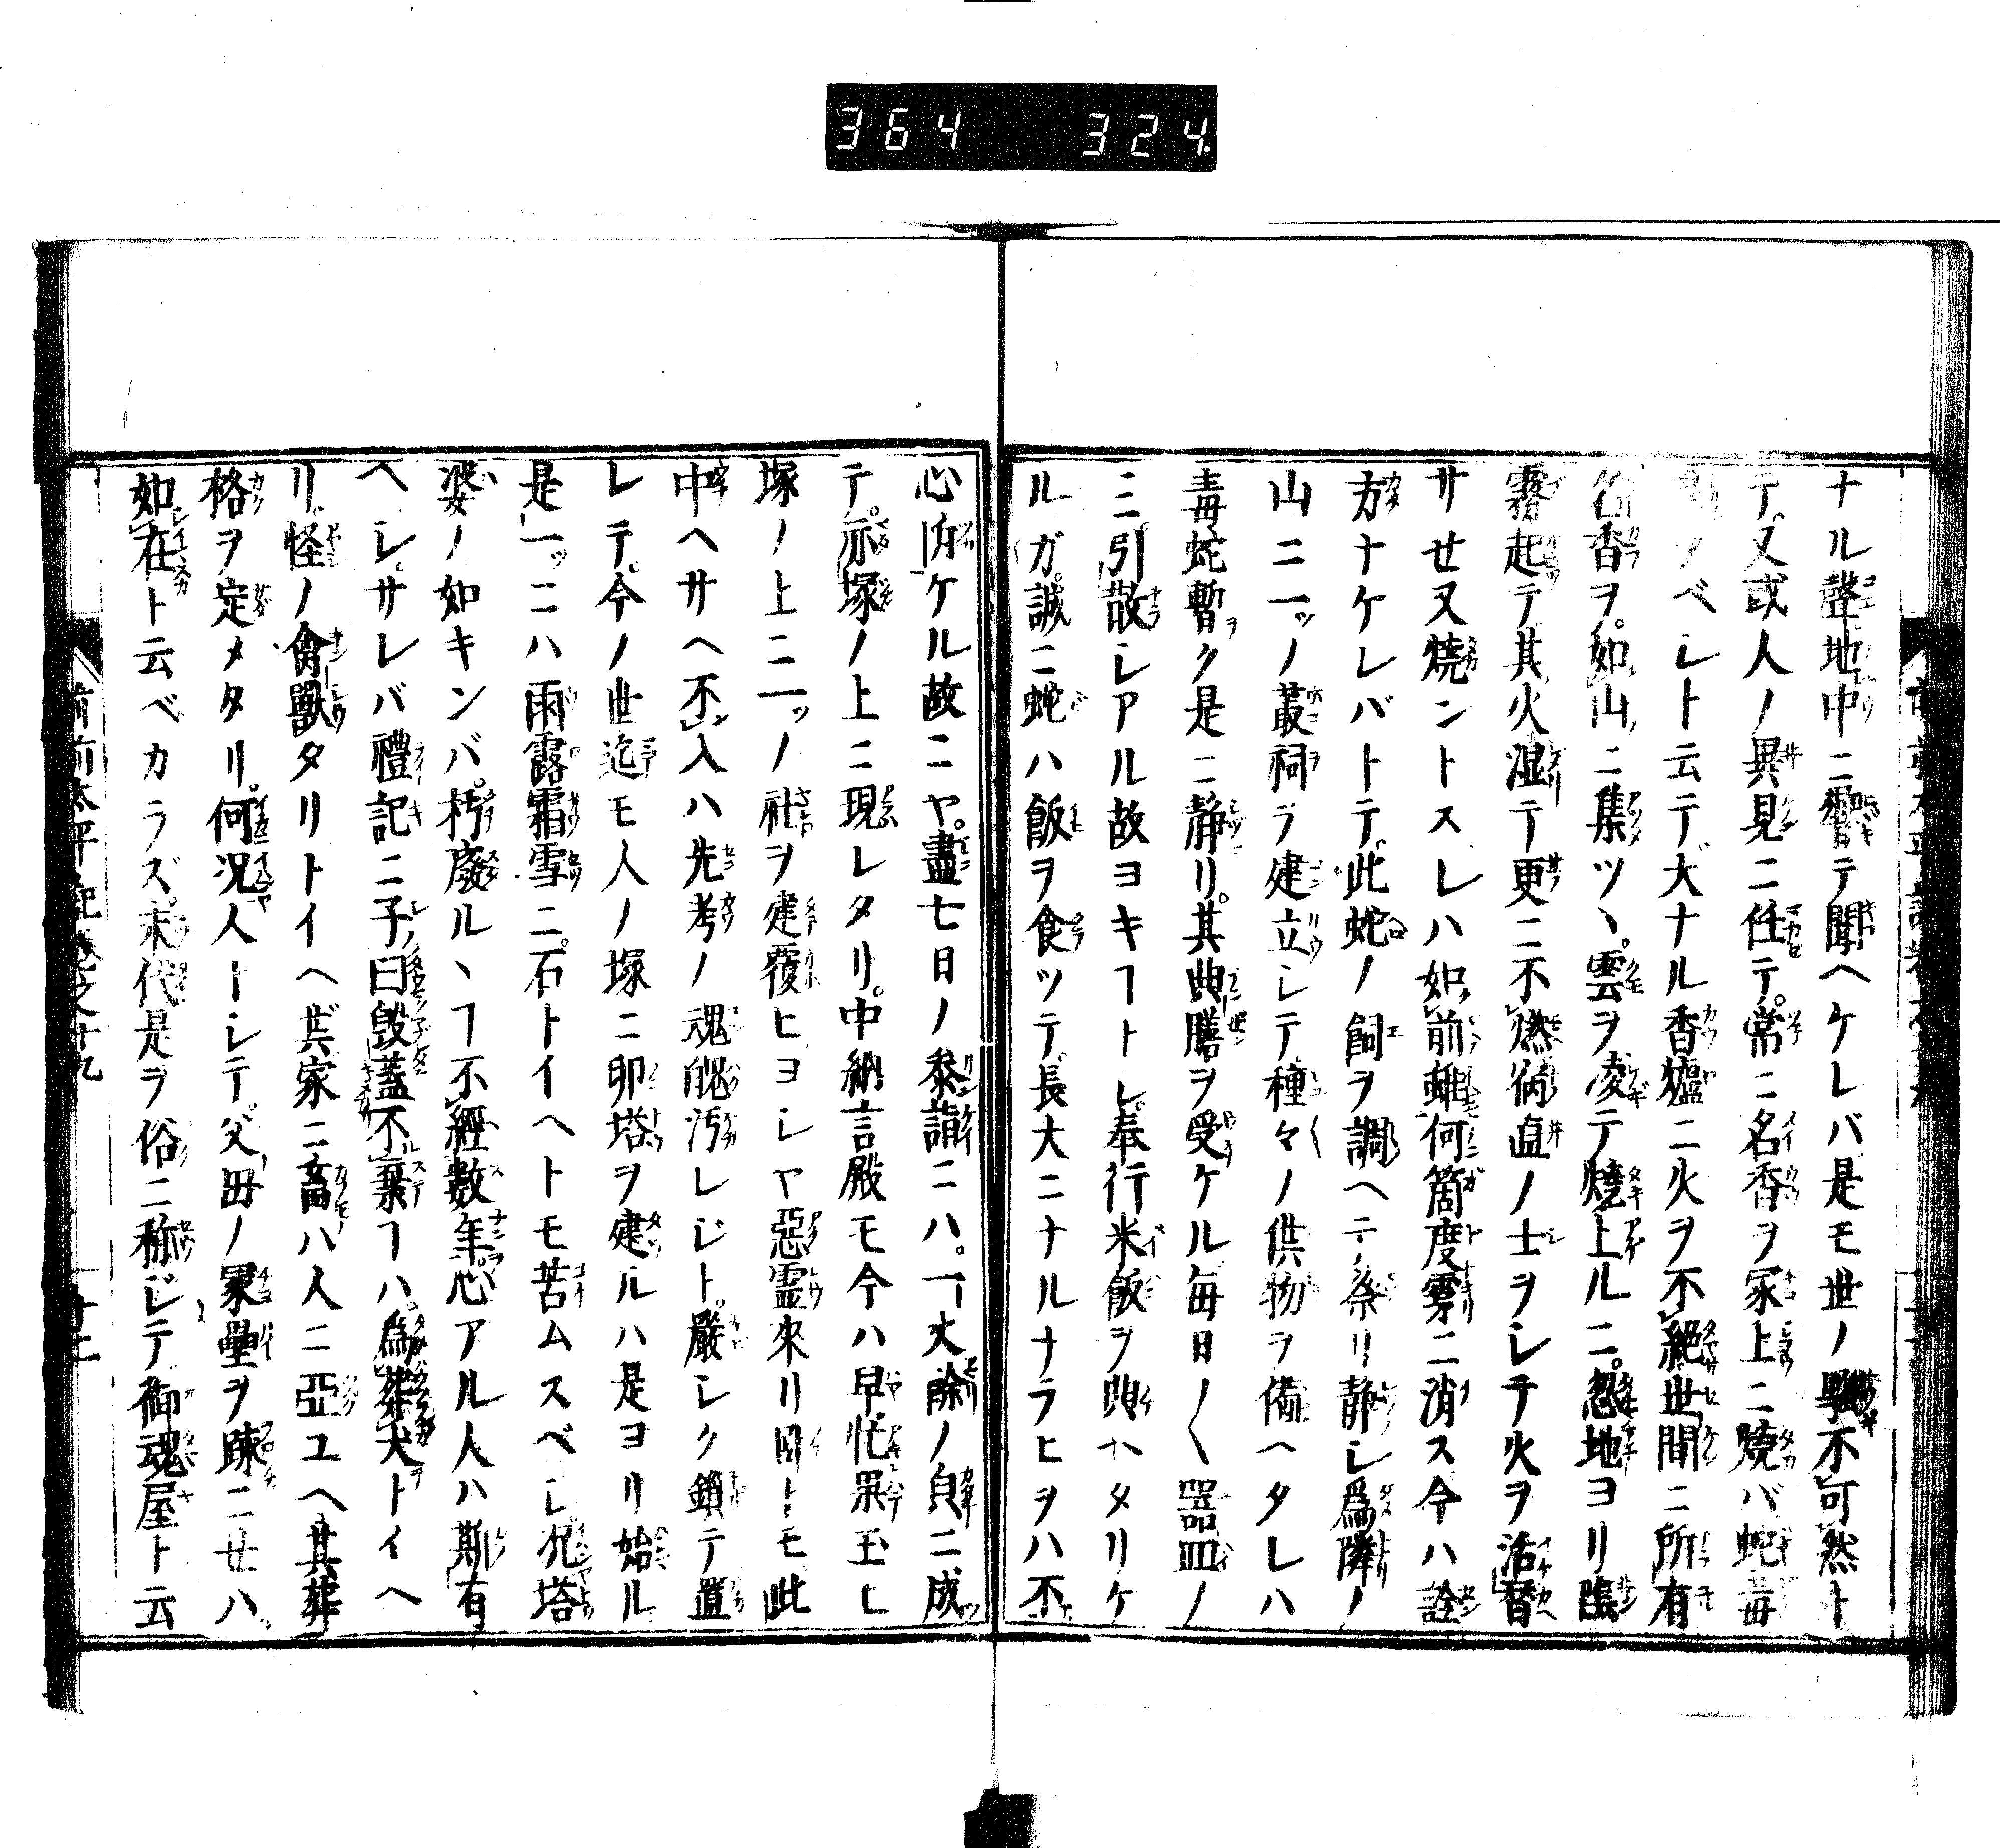 364 324.
ナル聲地中ニ響テ聞ヘケレバ是モ世ノ譏不可然ト
テ又或人ノ異見ニ任テ常ニ名香ヲ冢上ニ燒バ蛇毒
ノベレト云テ大ナル香爐ニ火ヲ不絶世間ニ所有
名香ヲ如山ニ集ツヽ雲ヲ凌テ燒上ルニ忽地ヨリ
霧起テ其火湿テ更ニ不燃宿直ノ士ヲシテ火ヲ活替
サセ又燒ントスレハ如前雖何箇度雰ニ消ス今ハ詮
方ナケレバトテ此蛇ノ飼ヲ調ヘテ祭リ静レ爲隣ノ
山ニ一ッノ叢祠ヲ建立シテ種々ノ供物ヲ備ヘタレハ
毒蛇暫ク是ニ静リ其典膳ヲ受ケル毎日〳〵器皿ノ
ニ引散シアル故ヨキヿトレ奉行米飯ヲハタリケ
ルガ誠ニ蛇ハ飯ヲ食ッテ長大ニナルナラヒヲハ不
心付ケル故ニヤ盡七日ノ參詣ニハ一丈餘ノ貟ニ成
テ亦塚ノ上ニ現レタリ中納言殿モ今ハ早忙果玉ヒ
塚ノ上ニ一ッノ社ヲ建覆ヒヨシヤ惡霊來リ囙トモ此
中ヘサヘ不入ハ先考ノ魂魄汚レジト嚴シク鎖テ置
レテ今ノ世迄モ人ノ塚ニ卵塔ヲ建ルハ是ヨリ始ル
是一ッニハ雨露霜雪ニ石トイヘトモ苔ムスベシ况塔
婆ノ如キンバ朽廢ルヽヿ不經數年心アル人ハ斯有
ヘレサレバ禮記ニ子曰毀蓋不棄ヿハ爲葬犬トイヘ
リ怪ノ禽獸タリトイヘ𪜈家ニ畜ハ人ニ亞ユヘ其葬
格ヲ定メタリ何況人トシテ父母ノ冢壘ヲ踈ニせハ
如在ト云ベカラズ末代是ヲ俗ニ称ジテ御魂屋ト云
前前太平記卷之十九